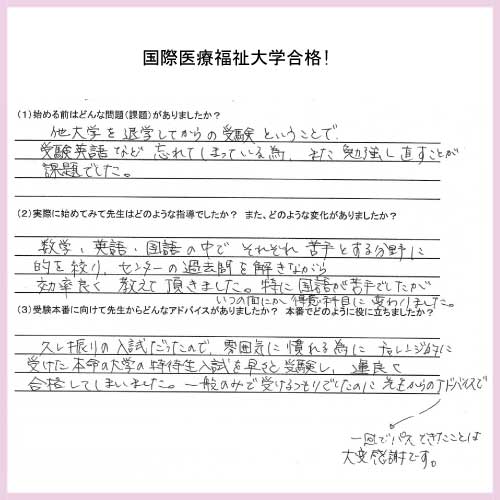 国際医療福祉大学合格!
(1)始める前はどんな問題(課題)がありましたか?
他大学を退学してからの受験ということで、
受験英語など忘れてしまっている為、また勉強し直すことが
課題でした。
(2)実際に始めてみて先生はどのような指導でしたか? また、どのような変化がありましたか?
数学、英語、国語の中でそれぞれ苦手とする分野に
的を絞り、センターの過去問を解きながら
効率良く教えて頂きました。特に国語が苦手でしたが
いつの間にか得意科目に変わりました。
(3)受験本番に向けて先生からどんなアドバイスがありましたか? 本番でどのように役に立ちましたか?
久し振りの入試だったので、雰囲気に慣れる為にチャレンジ的に
受けた本命の大学の特待生入試を早々と受験し、運良く
合格してしまいました。一般のみで受けるつもりでしたのに先生からのアドバイスで
一回でパスできたことは
大変感謝です。